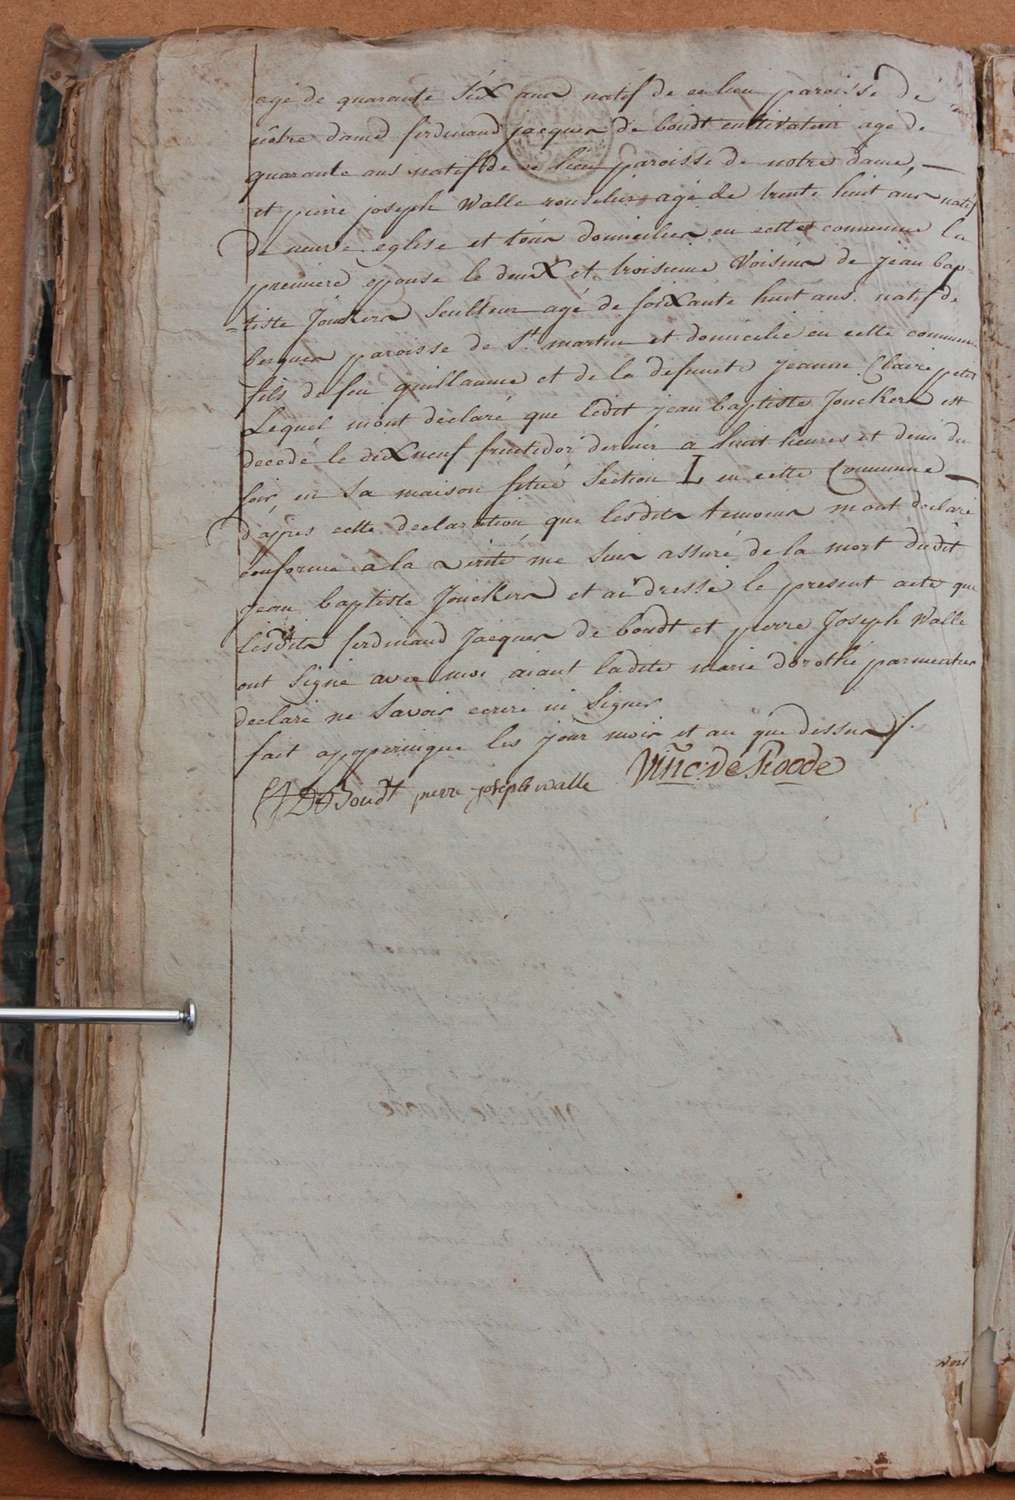 agé de quarante six ans natif de ce lieu paroisse de
nôtre dame ferdinand jacques de boudt cultivateur agé de
quarante ans natif de ce lieu paroisse de notre dame, —
et pierre joseph Walle agé de trente huit ans natif
de neuve eglise et tous domiciliés en cette commune la
premiere epouse le deux et troisieme Voisins de jean bap-
tiste Jonckers agé de soixante huit ans natif de
bergues paroisse de St. martin et domicilié en cette commune
fils de feu guillaume et de la defunte jeanne Claire
Lequel m'ont declaré que ledit jean baptiste Jonckers est
decedé le dix neuf fructidor dernier a huit heures et demi du
soir en sa maison situé section L en cette Commune —
d'apres cette declaration que lesdits temoins m'ont declaré
conforme a la verité me suis assuré de la mort dudit
jean baptiste Jonckers et ai dressé le present acte que
lesdits ferdinand Jacques de boudt et pierre Joseph Walle
ont signé avec moi aiant ladite marie dorothé parmentier
declaré ne savoir ecrire ni signer
fait a les jour mois et an que dessus /.
DeBoudt pierre joseph walle Vinc: de Roode